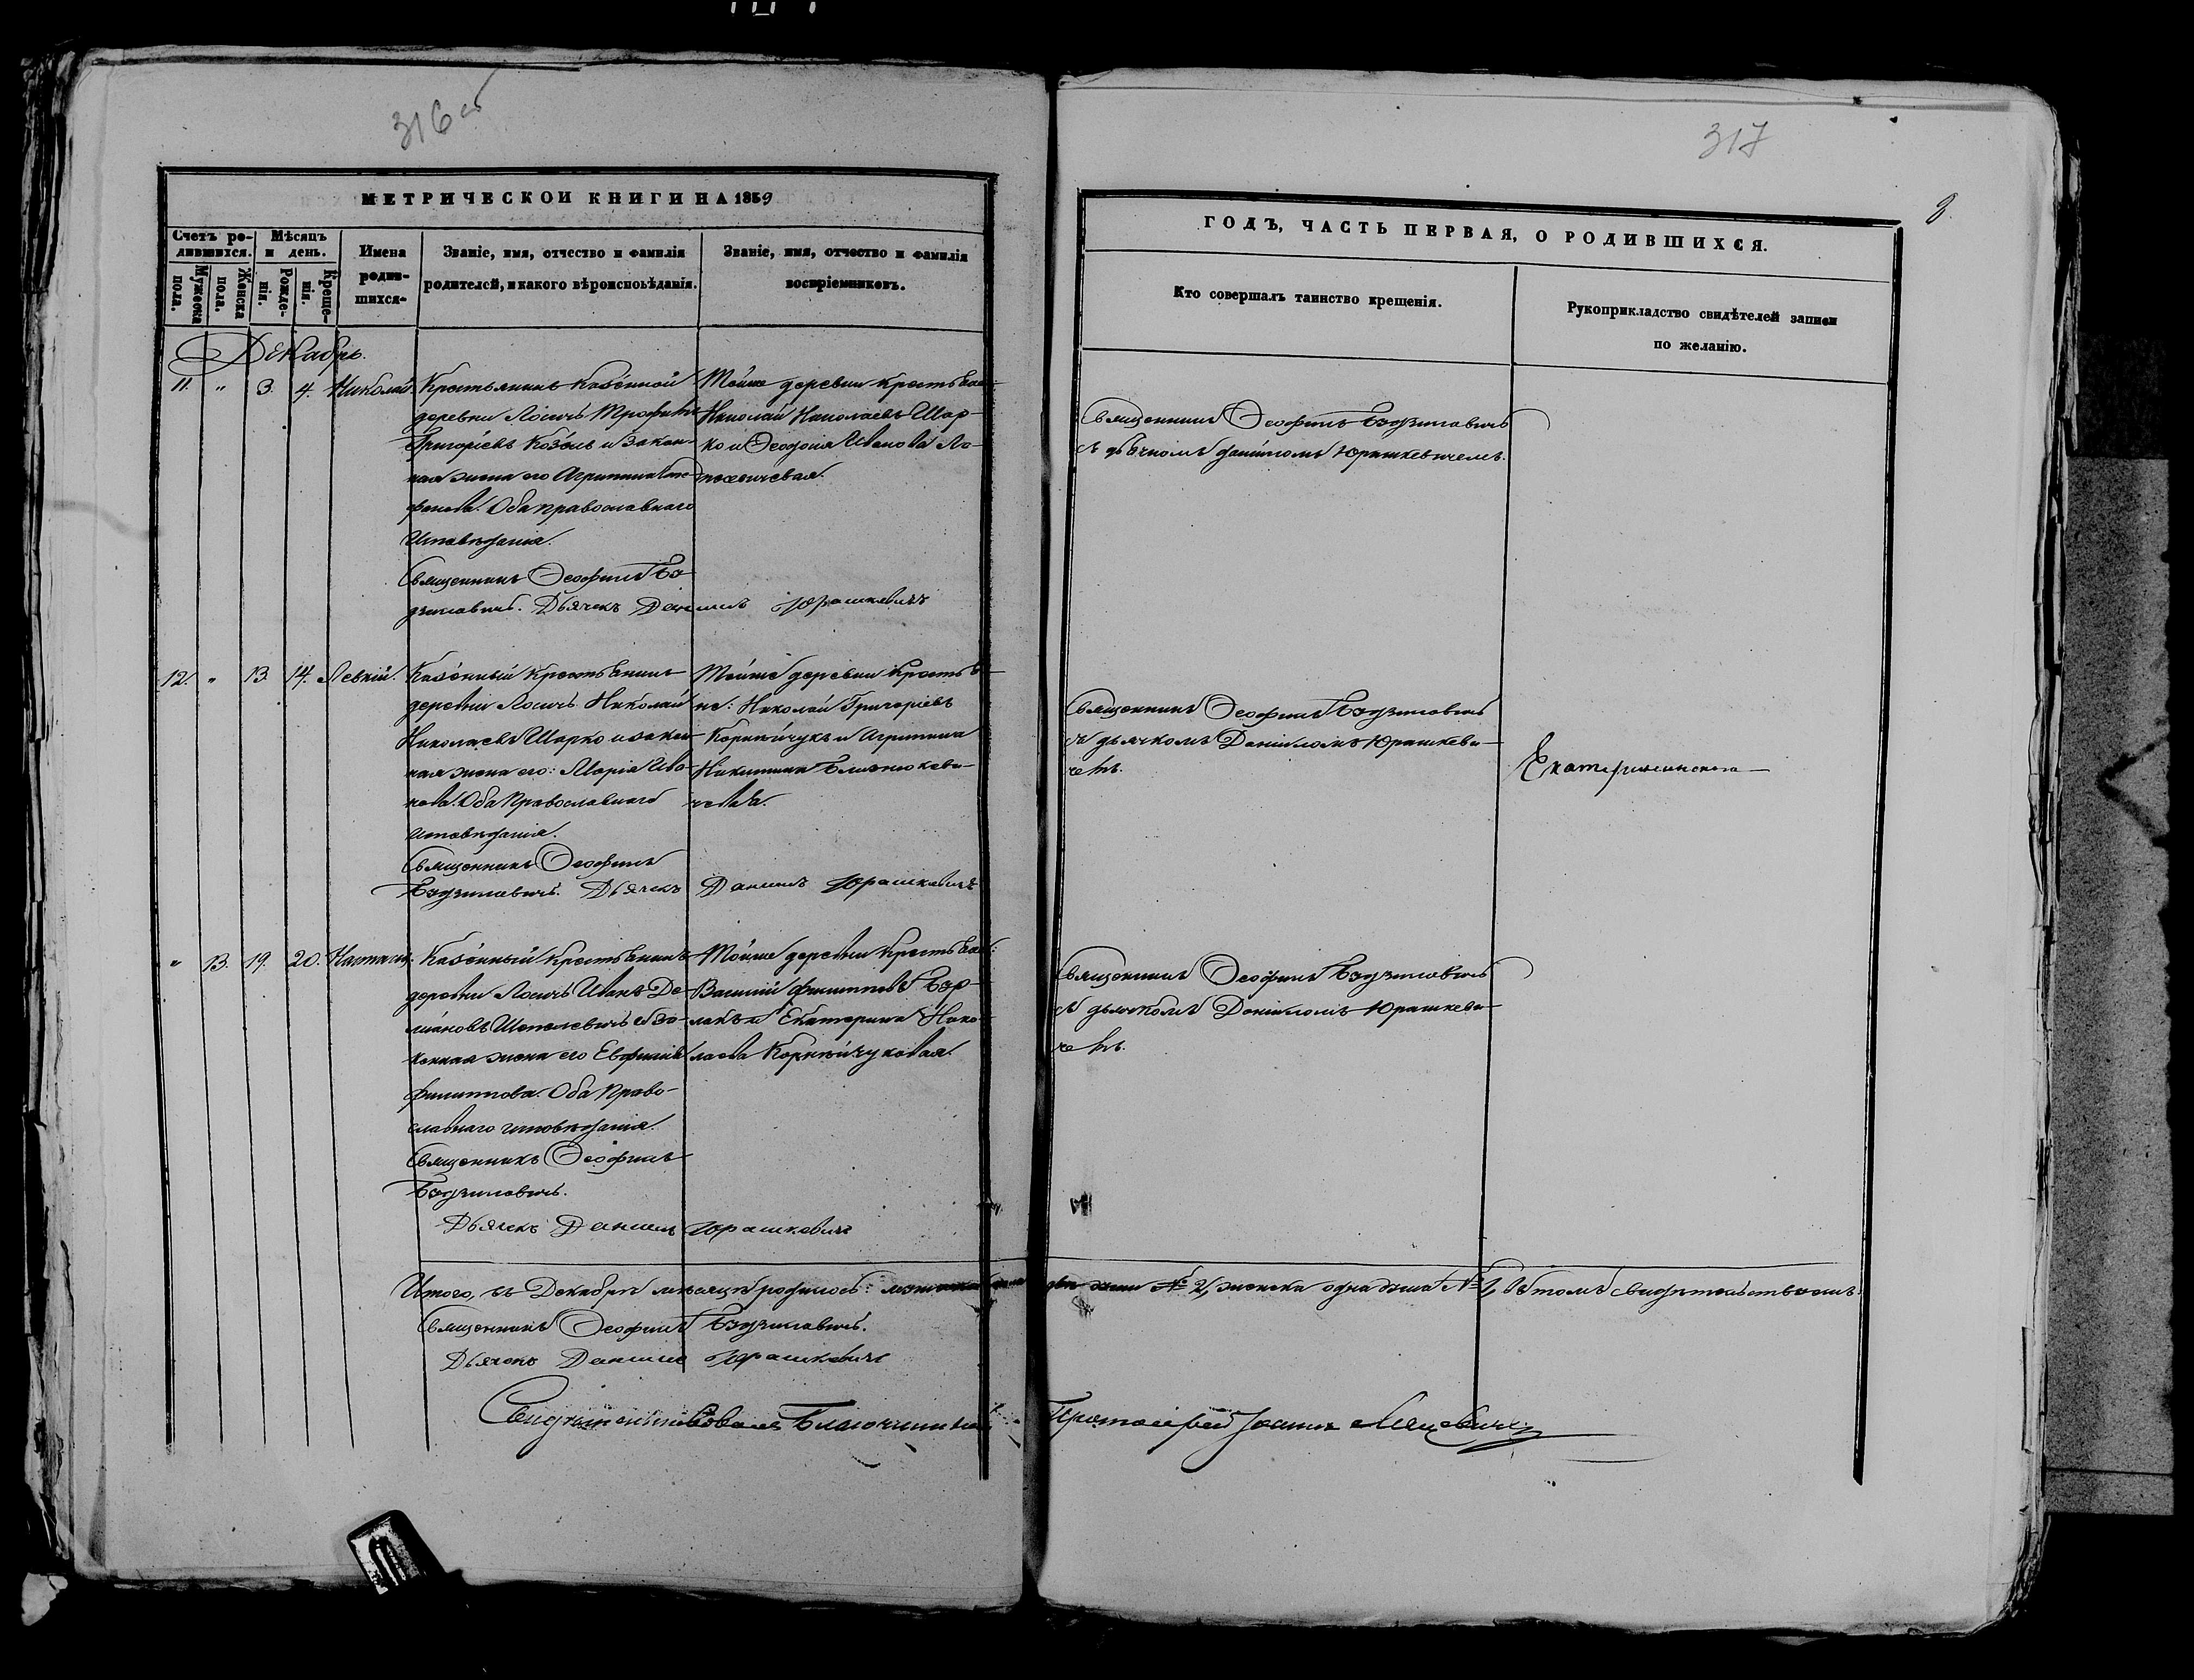 316 об
317
9.
МЕТРИЧЕСКОЙ КНИГИ НА 1859
ГОДЪ, ЧАСТЬ ПЕРВАЯ, О РОДИВШИХСЯ.
Счетъ ро-
дившихся.
Мѣсяцъ
и день.
Мужеска
пола.
Женска
пола.
Рожде-
нія.
Креще-
нія.
Имена
родив-
шихся
Званіе, имя, отчество и фамилія
родителей, и какого вѣроисповѣданія.
Званіе, имя, отчество и фамилія
воспріемниковъ.
Кто совершалъ таинство крещенія.
Рукоприкладство свидѣтелей записи
по желанію.
Декабрь.
11. " 3. 4. Николай.
Крестьянинъ казенной
деревни Лосичъ Трофимъ
Григоріевъ Козелъ и закон-
ная жена его Агрипина
Оба православнаго
Исповѣданія.
Священникъ Ѳеофилъ Бэ
дзилевичъ. Дьячекъ Даніилъ Юрашкевичъ
Тойже деревни крестьяне
Николай Николаевъ Шар-
ко и Ѳеодосія Иванова
Священникъ Ѳеофилъ Бэдзилевичъ
съ дьячкомъ Даніиломъ Юрашкевичемъ.
12. " 13. 14. Левкій.
Казенный крестьянинъ
деревни Лосичъ Николай
Николаевъ Шарко и закон-
ная жена его: Марія Ива-
нова. Оба Православнаго
исповѣданія.
Священникъ Ѳеофилъ
Бэдзилевичъ. Дьячекъ Даніилъ Юрашкевичъ
Тойже деревни крестья-
не: Николай Григоріевъ
Корнѣйчукъ и Агрипина
Никитина Близнюкеви-
чева.
Священникъ Ѳеофилъ Бэдзилевичъ
съ дьячкомъ Даніиломъ Юрашкеви-
чемъ.
" 13. 19. 20. Настасія.
Казенный крестьянинъ
деревни Лосичъ Иванъ Де-
міановъ Шепелевичъ и за-
конная жена его Евфимія
Филиппова. Оба Право-
славнаго исповѣданія.
Священникъ Ѳеофилъ
Бэдзилевичъ.
Дьячекъ Даніилъ Юрашкевичъ
Тойже деревни крестьяне:
Василій Филипповъ
и Екатерина Нико-
лаева Корнѣйчуковая.
Священникъ Ѳеофилъ Бэдзилевичъ
съ дьячкомъ Даніиломъ Юрашкеви-
чемъ.
Итого, въ Декабрѣ мѣсяцѣ родилось: мужеска двѣ души № 2, женска одна душа № 1, въ томъ свидѣтельствуемъ.
Священникъ Ѳеофилъ Бэдзилевичъ.
Дьячекъ Даніилъ Юрашкевичъ
Свидѣтельствовалъ Благочинный Протоіерей Іоаннъ